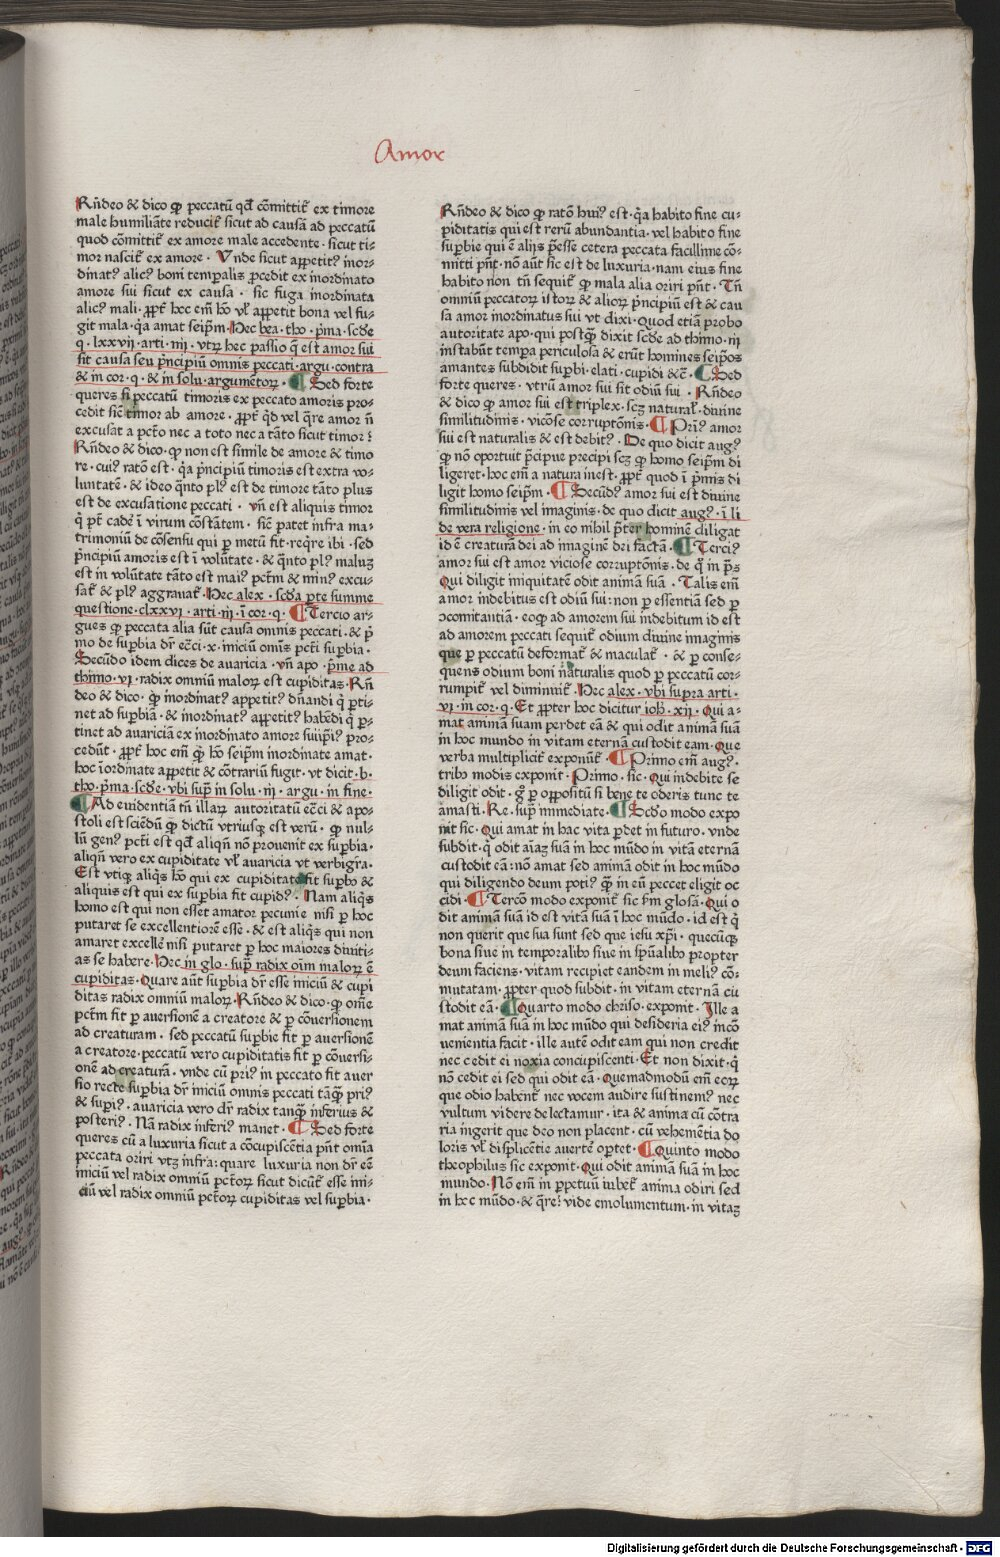 Amor
Rñdeo & dico ꝙ peccatū qd̄ cōmittit̄ ex timore
male humiliāte reducit̄ sicut ad causā ad peccatū
quod cōmittit̄ ex amore male accedente · sicut ti-
mor nascit̄ ex amore · Vnde sicut appetitꝰ inor-
dinatꝰ alicꝰ boni temꝑalis ꝓcedit ex inordinato
amore sui sicut ex causa · sic fuga inordinata
alicꝰ mali · ꝓpt̄ hoc em̄ hō vl̄ appetit bona vel fu-
git mala · q̄a amat seip̄m · Hec bea · tho · p̄ma · scd̄e
q · lxxvij · arti · iiij · vtꝝ hec passio q̄ est amor sui
sit causa seu p̄ncipiū omnis peccati · argu · contra
& in cor · q · & in solu · argumētoꝝ · ¶ Sed forte
queres si peccatū timoris ex peccato amoris pro-
cedit sic̄ timor ab amore · ꝓpt̄ qd̄ vel q̄re amor n̄
excusat a pct̄o nec a toto nec a tāto sicut timor ?
Rñdeo & dico · ꝙ non est simile de amore & timo
re · cuiꝰ ratō est · q̄a p̄ncipiū timoris est extra vo-
luntatē · & ideo q̄nto plꝰ est de timore tāto plus
est de excusatione peccati · vn̄ est aliquis timor
q̄ pt̄ cadeˀ ī virum cōstātem · sic̄ patet infra ma-
trimoniū de cōsensu qui ꝑ metū fit · req̄re ibi · sed
p̄ncipiū amoris est ī volūtate · & q̄nto plꝰ maluꝫ
est in volūtate tāto est maiꝰ pctm̄ & minꝰ excu-
sat̄ & plꝰ aggrauat̄ · Hec alex · scd̄a ꝑte summe
questione · clxxvj · arti · iij · ī cor · q · ¶ Tercio ar-
gues ꝙ peccata alia sūt causa omnis peccati · & p̄
mo de suꝑbia dr̄ ecc̄i · x · iniciū om̄is pct̄i suꝑbia ·
Secūdo idem dices de auaricia · vn̄ apo · p̄me ad
thimo · vj · radix omniū maloꝝ est cupiditas · Rñ
deo & dico · ꝙ inordinatꝰ appetitꝰ dn̄andi q̄ ꝑti-
net ad suꝑbiā · & inordinatꝰ appetitꝰ habēdi q̄ ꝑ-
tinet ad auariciā ex inordinato amore suiip̄iꝰ pro-
cedūt · ꝓpt̄ hoc em̄ ꝙ hō seipm̄ inordinate amat ·
hoc īordinate appetit & cōtrariū fugit · vt dicit · b ·
tho · p̄ma · scd̄e · vbi supͣ in solu · iij · argu · in fine ·
¶ Ad euidentiā tn̄ illaꝝ autoritatū ecc̄i & apo-
stoli est sciēdū ꝙ dictū vtriusqꝫ est verū · ꝙ nul-
lū genꝰ pct̄i est qd̄ aliqn̄ nō ꝓouenit ex suꝑbia ·
aliqn̄ vero ex cupiditate vl̄ auaricia vt verbigr̄a ·
Est vtiqꝫ aliq̄s hō qui ex cupiditate fit suꝑbꝰ &
aliquis est qui ex suꝑbia fit cupidꝰ · Nam aliq̄s
homo est qui non esset amator pecunie nisi ꝑ hoc
putaret se excellentiorē esse · & est aliq̄s qui non
amaret excellēˀ nisi putaret ꝑ hoc maiores diuiti-
as se habere · Hec in glo · suꝑ radix oīm maloꝝ ē
cupiditas · Quare aūt suꝑbia dr̄ esse iniciū & cupi
ditas radix omniū maloꝝ · Rñdeo & dico · ꝙ om̄e
pctm̄ fit ꝑ auersionē a creatore & ꝑ cōuersionem
ad creaturam · sed peccatū suꝑbie fit ꝑ auersionē
a creatore · peccatū vero cupiditatis fit ꝑ cōuersi-
onē ad creaturā · vnde cū priꝰ in peccato fit auer
sio recte suꝑbia dr̄ iniciū omnis peccati tāꝙ̄ priꝰ
& supiꝰ · auaricia vero dr̄ radix tanꝙ̄ inferius &
posteriꝰ · Nā radix inferiꝰ manet · ¶ Sed forte
queres cū a luxuria sicut a cōcupiscētia pn̄t om̄ia
peccata oriri vtꝫ infra: quare luxuria non dr̄ eē
iniciū vel radix omniū pct̄oꝝ sicut dicūt̄ esse ini-
ciū vel radix omniū pct̄oꝝ cupiditas vel suꝑbia ·
Rñdeo & dico ꝙ ratō huiꝰ est · q̄a habito fine cu-
piditatis qui est rerū abundantia · vel habito fine
suꝑbie qui ē alijs p̄esse cetera peccata facillime cō-
mitti pn̄t · nō aūt sic est de luxuria · nam eius fine
habito non tn̄ sequit̄ ꝙ mala alia oriri pn̄t · Tn̄
omniū peccatoꝝ istoꝝ & alioꝝ p̄ncipiū est & cau
sa amor inordinatus sui vt dixi · Quod etiā probo
autoritate apo · qui postꝙ̄ dixit scd̄e ad thimo · iij
instabūt tempa periculosa & erūt homines seip̄os
amantes subdidit suꝑbi · elati · cupidi &c̄ · ¶ Sed
forte queres · vtrū amor sui sit odiū sui · Rñdeo
& dico ꝙ amor sui est triplex · scꝫ natural̄ · diuine
similitudinis · vicōse corruptōnis · ¶ Prīꝰ amor
sui est naturalis & est debitꝰ · De quo dicit augꝰ
ꝙ nō oportuit p̄cipue precipi scꝫ ꝙ homo seip̄m di
ligeret · hoc em̄ a natura inest · ꝓpt̄ quod ī p̄mis di
ligit homo seip̄m · ¶ Secūdꝰ amor sui est diuine
similitudinis vel imaginis · de quo dicit augꝰ · ī li
de vera religione · in eo nihil p̄ter hominē diligat
id ē creaturā dei ad imaginē dei factā · ¶ Terciꝰ
amor sui est amor viciose corruptōnis · de q̄ in p̄s
Qui diligit iniquitatē odit animā suā · Talis em̄
amor indebitus est odiū sui: non ꝑ essentiā sed ꝑ
ↄcomitantiā · eoqꝫ ad amorem sui indebitum id est
ad amorem peccati sequit̄ odium diuine imaginis
que ꝑ peccatū deformat̄ & maculat̄ · & ꝑ conse-
quens odium boni naturalis quod ꝑ peccatū cor-
rumpit̄ vel diminuit̄ · Hec alex · vbi supra arti ·
vj · in cor · q · Et ꝓpter hoc dicitur ioh̄ · xij · Qui a-
mat animā suam perdet eā & qui odit animā suā
in hoc mundo in vitam eternā custodit eam · Que
verba multiplicit̄ exponūt̄ · ¶ Primo em̄ augꝰ ·
tribꝰ modis exponit · Primo · sic · Qui indebite se
diligit odit · gͦ ꝑ oppositū si bene te oderis tunc te
amasti · Re · supͣ immediate · ¶ Scd̄o modo expo
nit sic · Qui amat in hac vita ꝑdet in futuro · vnde
subdit · q̄ odit aīaꝫ suā in hoc mūdo in vitā eternā
custodit eā: nō amat sed animā odit in hoc mūdo
qui diligendo deum potiꝰ ꝙ̄ in eū peccet eligit oc
cidi · ¶ Tercō modo exponit̄ sic ẜm glosā · Qui o
dit animā suā id est vitā suā ī hoc mūdo · id est q̄
non querit que sua sunt sed que iesu xp̄i · quecūqꝫ
bona siue in temporalibꝰ siue in sp̄ualibꝰ propter
deum faciens · vitam recipiet eandem in meliꝰ cō-
mutatam · ꝓpter quod subdit · in vitam eternā cu
stodit eā · ¶ Quarto modo chrisꝰ · exponit · Ille a
mat animā suā in hoc mūdo qui desideria eiꝰ incō
uenientia facit · ille autē odit eam qui non credit
nec cedit ei noxia concupiscenti · Et non dixit · q̄
nō cedit ei sed qui odit eā · Quemadmodū em̄ eoꝝ
que odio habent̄ nec vocem audire sustinemꝰ nec
vultum videre delectamur · ita & anima cū cōtra
ria ingerit que deo non placent · cū vehemētia do
loris vl̄ displicētie auertēˀ oꝑtet · ¶ Quinto modo
theophilus sic exponit · Qui odit animā suā in hoc
mundo · Nō em̄ in ꝑpetuū iubet̄ anima odiri sed
in hoc mūdo · & q̄reˀ vide emolumentum · in vitaꝫ
Digitalisierung gefördert durch die Deutsche Forschungsgemeinschaft · DFG